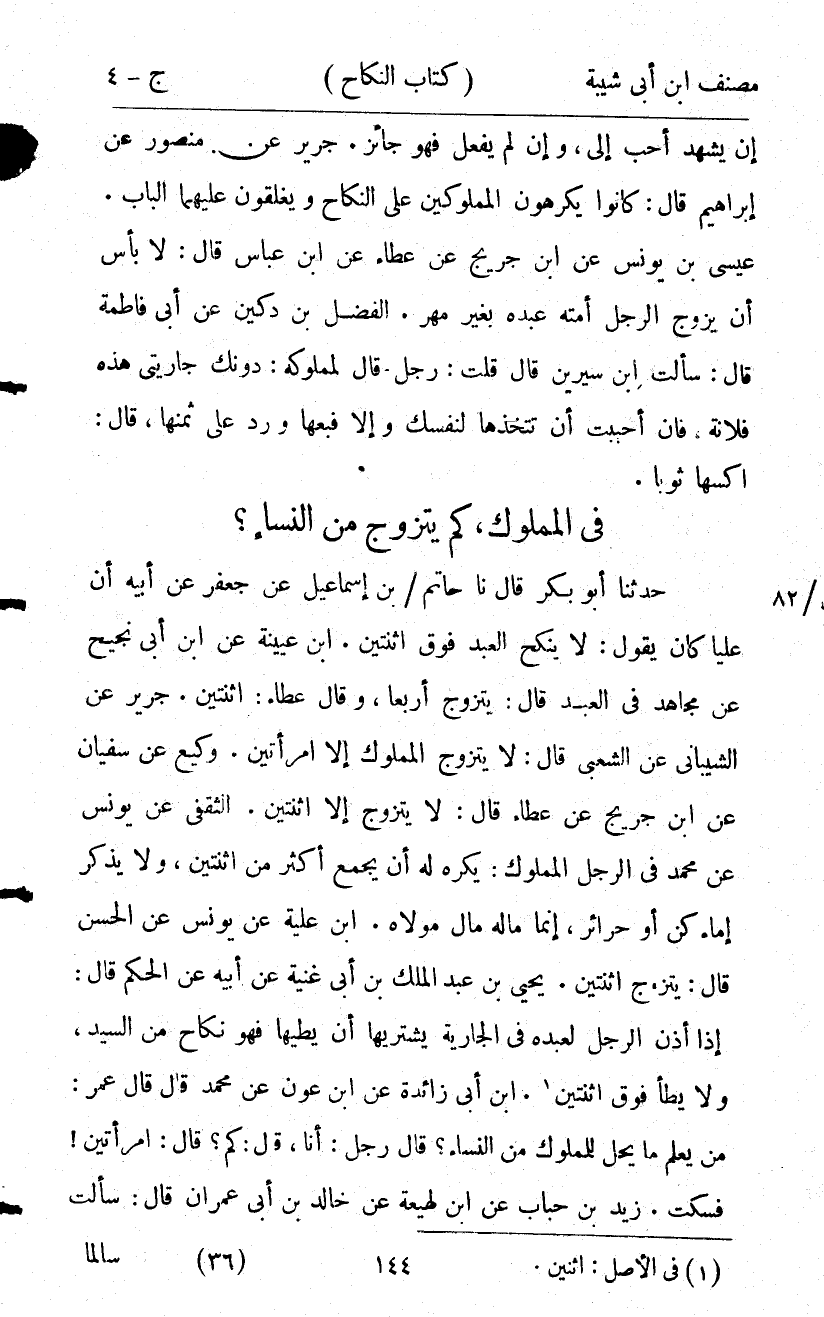 مصنف ابن أبى شيبة ( كتاب النكاح ) ج - ٤
إن يشهد أحب إلى، و إن لم يفعل فهو جائز . جرير عن منصور عن
إبراهيم قال : كانوا يكرهون المملوكين على النكاح و يغلقون عليهما الباب .
عيسى بن يونس عن ابن جريج عن عطاء عن ابن عباس قال : لا بأس
أن يزوج الرجل أمته عبده بغير مهر . الفضل بن دكين عن أبى فاطمة
قال : سألت ابن سيرين قال قلت : رجل قال لمملوكه : دونك جاريتى هذه
فلانة ، فان أحببت أن تتخذها لنفسك و إلا فبعها و رد على ثمنها ، قال :
اكسها ثوبا .
فى المملوك، كم يتزوج من النساء ؟
حدثنا أبو بكر قال نا حاتم / بن إسماعيل عن جعفر عن أبيه أن
/٨٢
عليا كان يقول : لا ينكح العبد فوق اثنتين . ابن عيينة عن ابن أبى نجيح
عن مجاهد فى العبد قال : يتزوج أربعا ، و قال عطاء : اثنتين . جرير عن
الشيبانى عن الشعبى قال : لا يتزوج المملوك إلا امرأتين . وكيع عن سفيان
عن ابن جريج عن عطاء قال : لا يتزوج إلا اثنتين . الثقفى عن يونس
عن محمد فى الرجل المملوك : يكره له أن يجمع أكثر من اثنتين ، و لا يذكر
إماء كن أو حرائر ، إنما ماله مال مولاه . ابن علية عن يونس عن الحسن
قال : يتزوج اثنتين . يحيى بن عبد الملك بن أبى غنية عن أبيه عن الحكم قال :
إذا أذن الرجل لعبده فى الجارية يشتريها أن يطيها فهو نكاح من السيد ،
و لا يطأ فوق اثنتين ١ . ابن أبى زائدة عن ابن عون عن محمد قال قال عمر :
من يعلم ما يحل للملوك من النساء ؟ قال رجل : أنا ، قال : كم ؟ قال : امرأتين !
فسكت . زيد بن حباب عن ابن لهيعة عن خالد بن أبى عمران قال : سألت
(١) فى الأصل : اثنين .
١٤٤ (٣٦) سالما